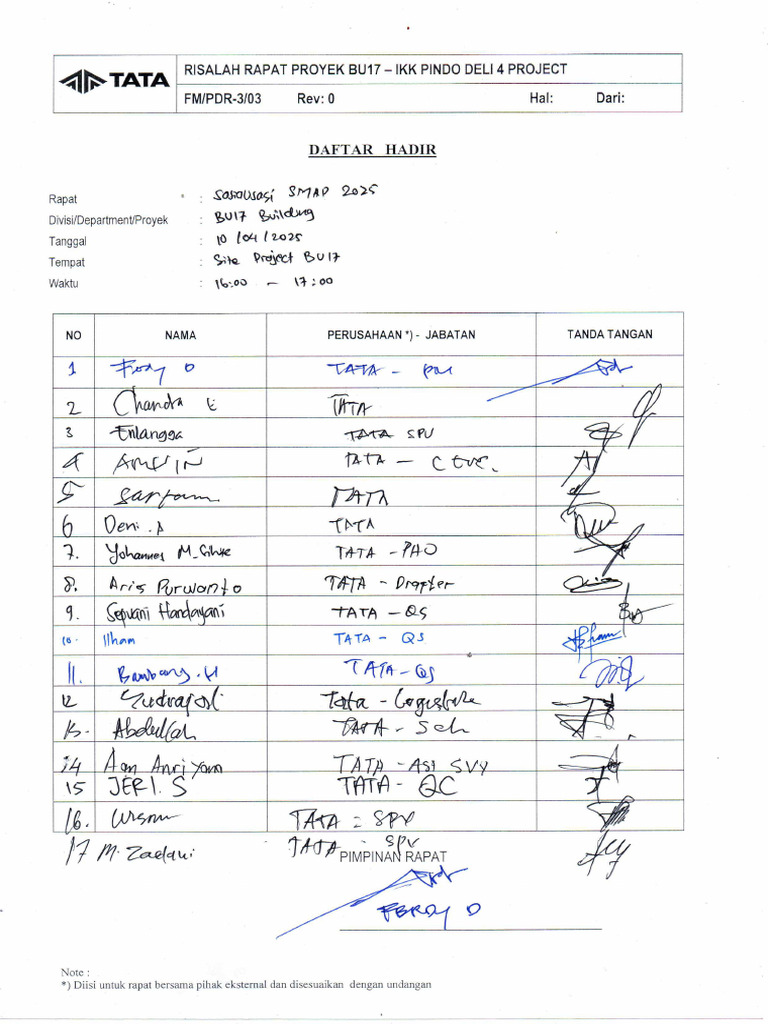 TATA
RISALAH RAPAT PROYEK BU17 – IKK PINDO DELI 4 PROJECT
FM/PDR-3/03 Rev: 0 Hal: Dari:
DAFTAR HADIR
Rapat : SMAP 2025
Divisi/Department/Proyek : BU17 Building
Tanggal : 10/04/2025
Tempat : Site Project BU17
Waktu : 16:00 – 17:00
NO NAMA PERUSAHAAN *) - JABATAN TANDA TANGAN
1 TATA -
2 Chandra E TATA
3 Erlangga TATA SPV
4 TATA -
5 TATA
6 Deni .A TATA
7. Yohannes M_ TATA - PAO
8. Aris Purwanto TATA - Drapter
9. Septiani Handayani TATA - QS
10. Ilham TATA - QS
11. Bambang .H TATA - QS
12 Tata -
13. Abdullah TATA -
14 Aan Anriyana TATA - ASI SVY
15 JERI. S TATA - QC
16. TATA = SPV
17 M. Zaelani TATA - SPV
PIMPINAN RAPAT
FERDY D
Note :
*) Diisi untuk rapat bersama pihak eksternal dan disesuaikan dengan undangan